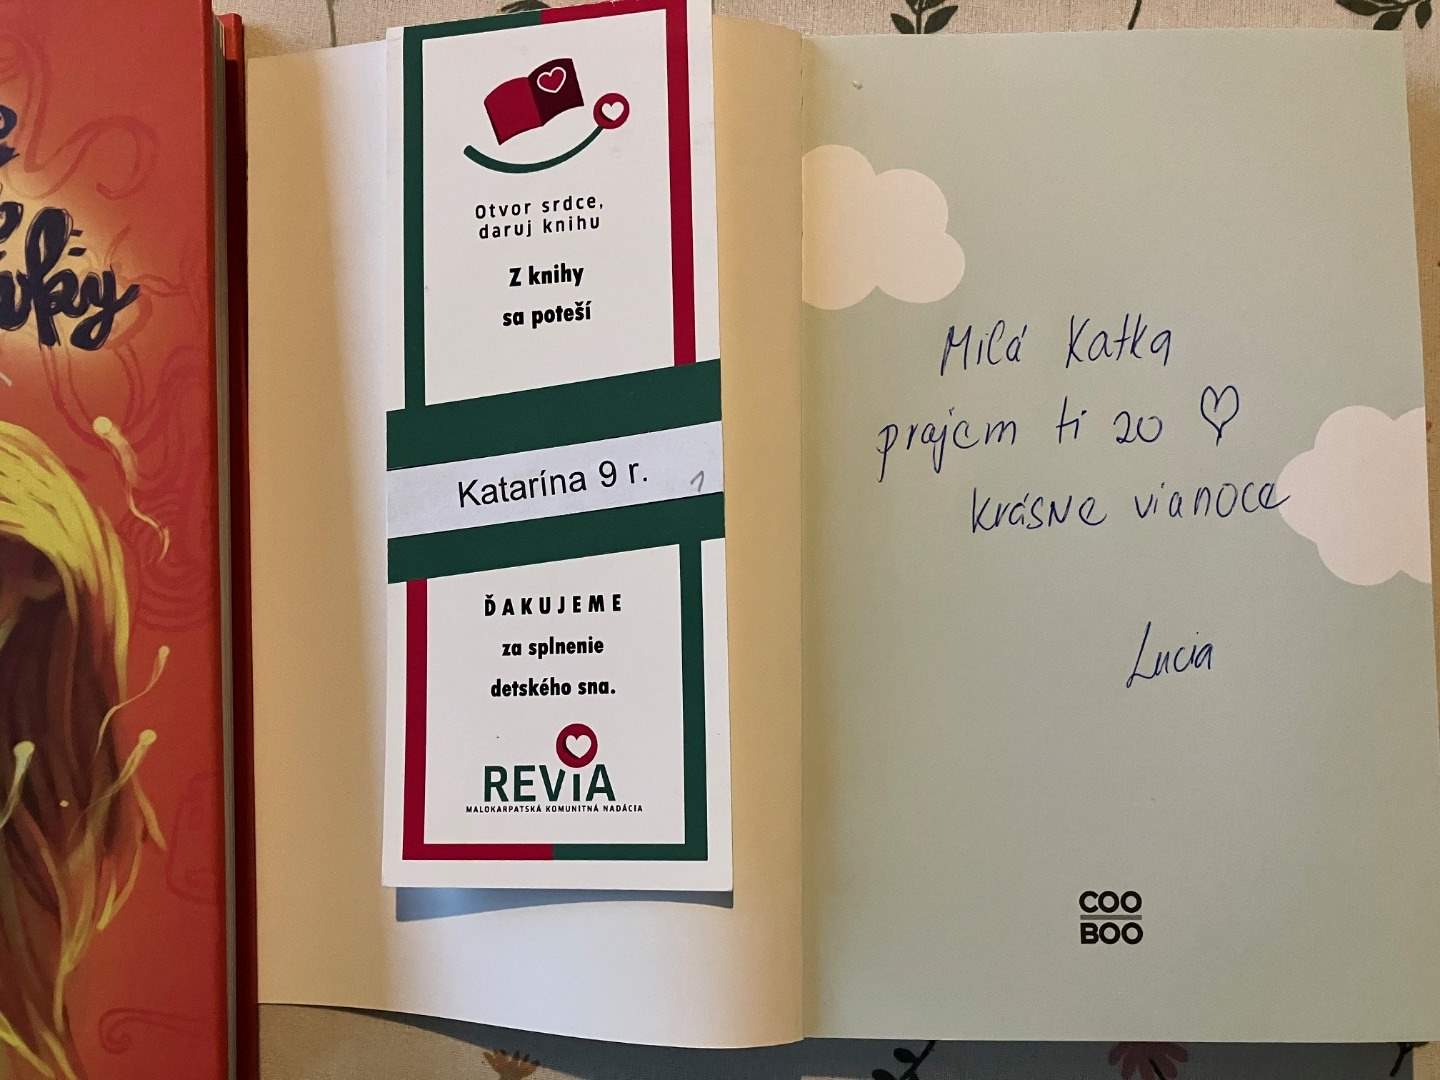 Otvor srdce,
daruj knihu
Z knihy
sa poteší
Katarína 9 r.
1
ĎAKUJEME
za splnenie
detského sna.
REViA
MALOKARPATSKÁ KOMUNITNÁ NADÁCIA
Milá Katka
prajem ti zo ♡
krásne vianoce
Lucia
COO
BOO